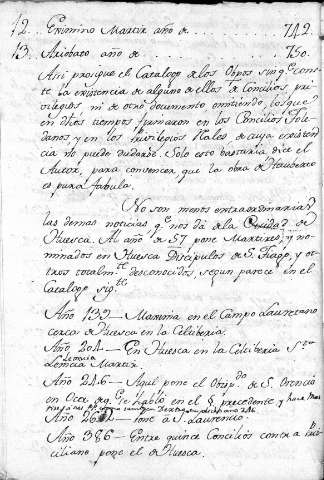 12.. Eximino Martir año de ....... 742.
13. Ariobato año de ....... 750.
Asi prosigue el Catalogo de los Obpos sin qe cons-
te la existencia de alguno de ellos de Concilios pri-
vilegios ni de otro documento omitiendo los que
en dhos tiempos firmaron en los Concilios Tole-
danos y en los Privilegios Rales de cuya existen-
cia no puede dudarse. Solo esto bastaria dice el
Autor, para convencer que la obra de Hauberto
es pura fabula.
No son menos extraordinarias
las demas noticias qe nos dá de la Ciudad de
Huesca. Al año de 57 pone Martires, y no-
minados en Huesca Discipulos de S. Tiago, y o-
tros totalmte desconocidos segun parece en el
Catalogo sigte
Año 133 — Maxima en el Campo Lauretano
cerca de Huesca en la Celtiberia.
Año 204 — En Huesca en la Celtiberia Sta
Lemcia Martir
Año 246 — Aqui pone el Obispdo de S. Orencio
en Osca de qe se habló en el § precedente y
Año — pone á S. Laurencio.
Año 386 — Entre quince Concilios contra Pris-
ciliano pone el de Huesca.